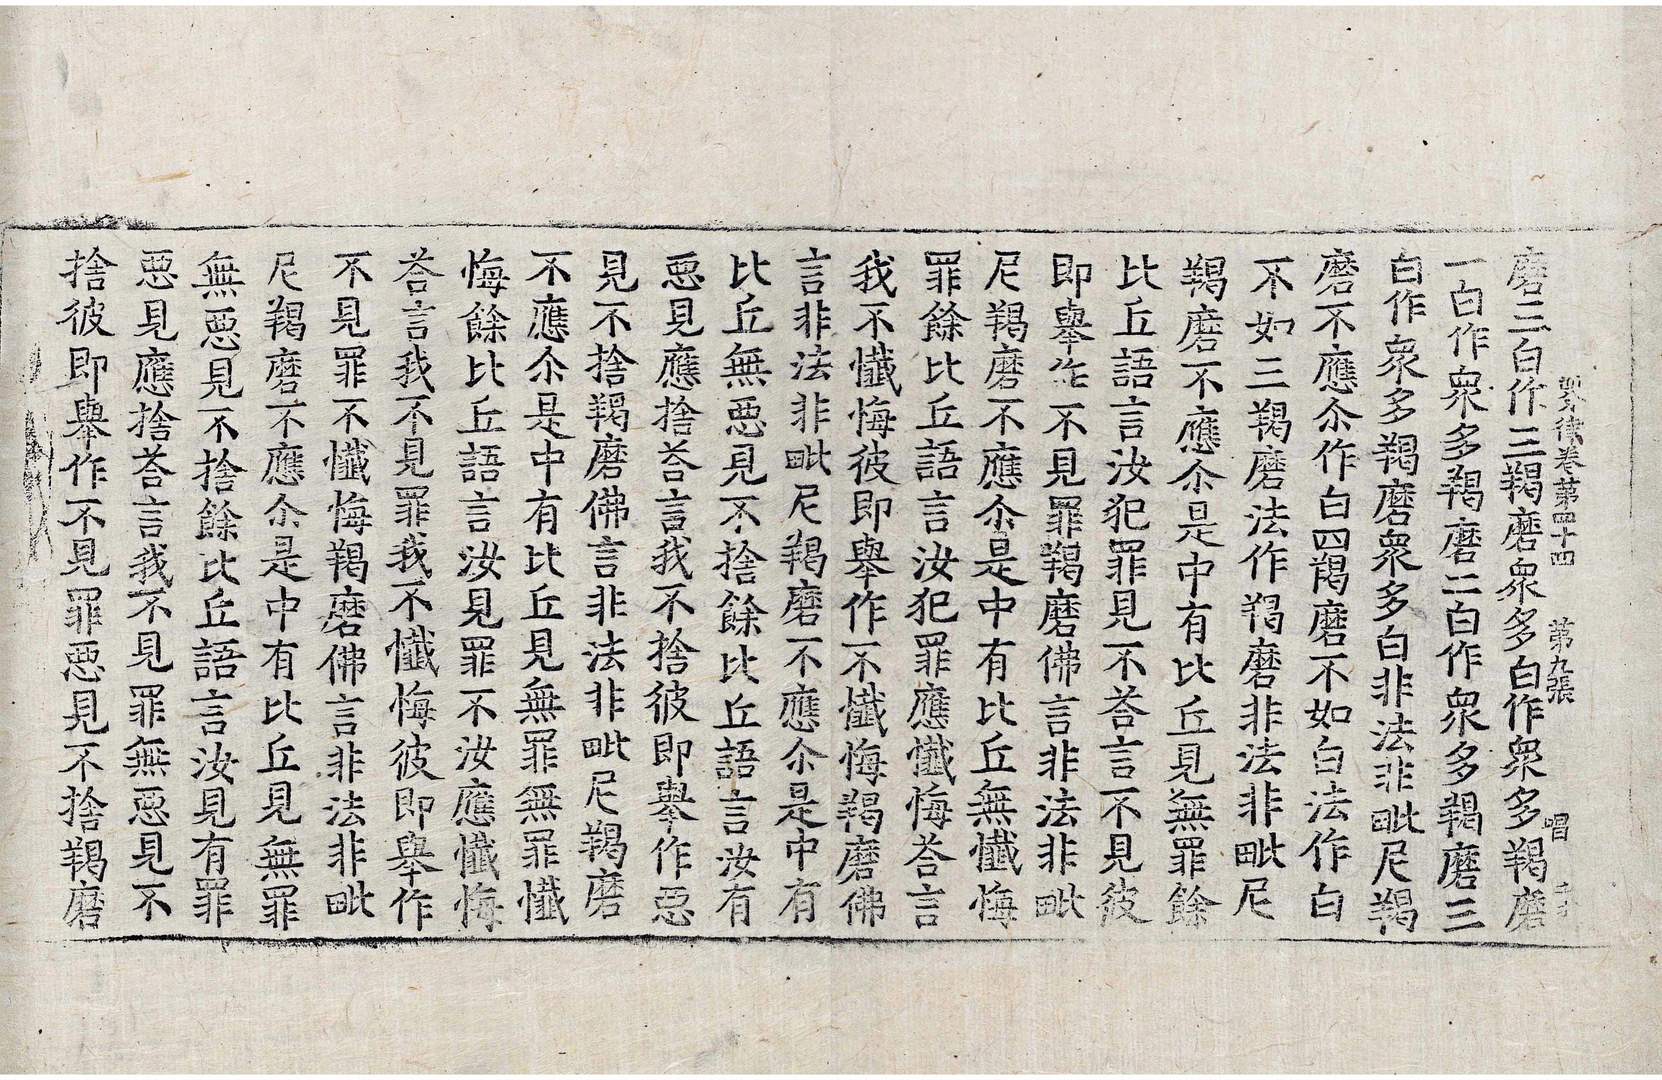 四分律卷第四十四 第九張 唱
磨三白作三羯磨衆多白作衆多羯磨
一白作衆多羯磨二白作衆多羯磨三
白作衆多羯磨衆多白非法非毗尼羯
磨不應尒作白四羯磨不如白法作白
不如三羯磨法作羯磨非法非毗尼
羯磨不應尒是中有比丘見無罪餘
比丘語言汝犯罪見不荅言不見彼
即舉作不見罪羯磨佛言非法非毗
尼羯磨不應尒是中有比丘無懺悔
罪餘比丘語言汝犯罪應懺悔荅言
我不懺悔彼即舉作不懺悔羯磨佛
言非法非毗尼羯磨不應尒是中有
比丘無惡見不捨餘比丘語言汝有
惡見應捨荅言我不捨彼即舉作惡
見不捨羯磨佛言非法非毗尼羯磨
不應尒是中有比丘見無罪無罪懺
悔餘比丘語言汝見罪不汝應懺悔
荅言我不見罪我不懺悔彼即舉作
不見罪不懺悔羯磨佛言非法非毗
尼羯磨不應尒是中有比丘見無罪
無惡見不捨餘比丘語言汝見有罪
惡見應捨荅言我不見罪無惡見不
捨彼即舉作不見罪惡見不捨羯磨